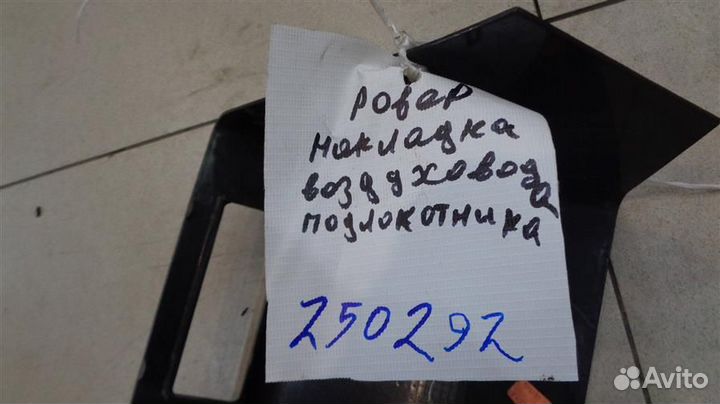 Ровар
Накладка
воздуховода
подлокотника
250292
Avito